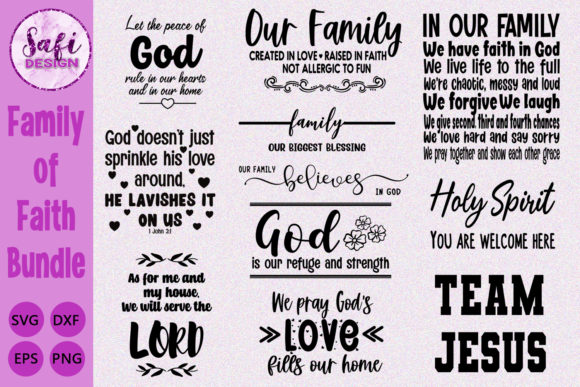 Safi
DESIGN
Family
of
Faith
Bundle
SVG
DXF
EPS
PNG
Let the peace of
God
rule in our hearts
and in our home
God doesn't just
sprinkle his love
around,
HE LAVISHES IT
ON US
1 John 3:1
As for me and
my house,
We will serve the
LORD
Our Family
CREATED IN LOVE • RAISED IN FAITH
NOT ALLERGIC TO FUN
family
OUR BIGGEST BLESSING
OUR FAMILY believes IN GOD
God
is our refuge and strength
We pray God's
LOVE
fills our home
IN OUR FAMILY
We have faith in God
We live life to the full
We're chaotic, messy and loud
We forgive We laugh
We give second, third and fourth chances
We love hard and say sorry
We pray together and show each other grace
Holy Spirit
YOU ARE WELCOME HERE
TEAM
JESUS